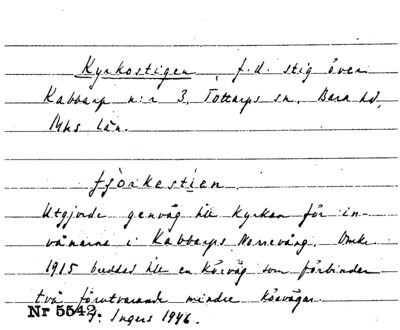 Kyrkostigen, f.d. stig över
Kabbarp n:r 3, Tottarps sn, Bara hd,
Mhs län.
fjörkestien.
Utgjorde genväg till kyrkan för in-
vånarna i Kabbarps Norrevång. Omkr
1915 breddes till en körväg som förbinder
två förutvarande mindre körvägar.
Nr 5542.
Ingers 1946.